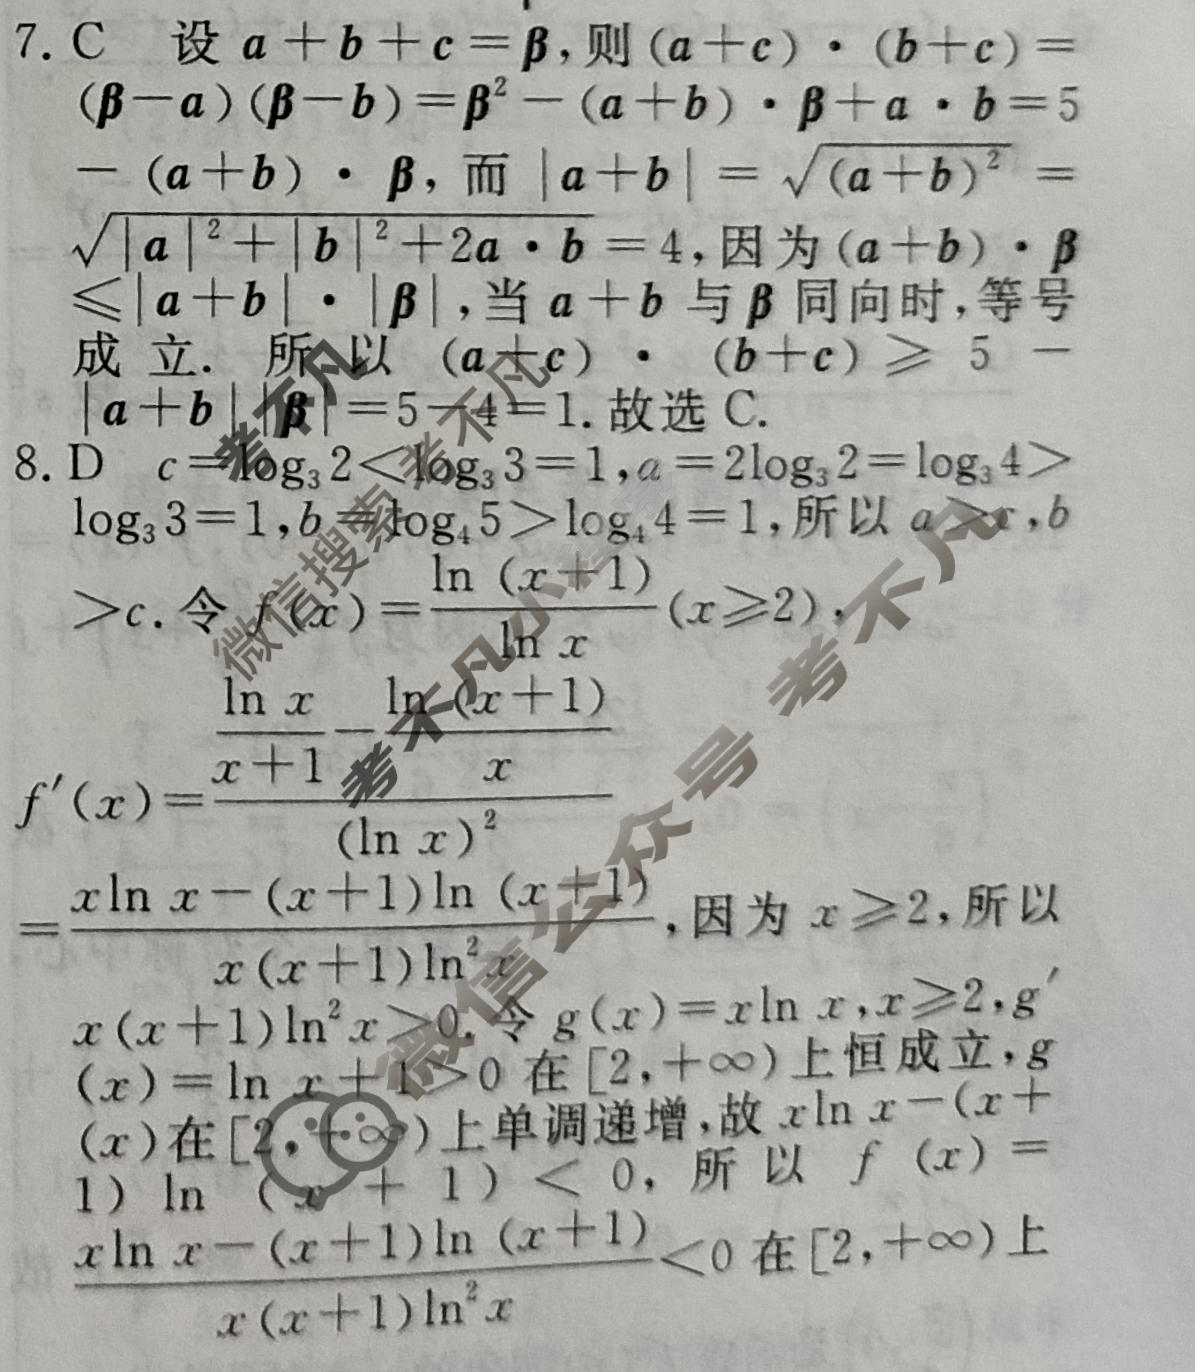 7. C 设 a+b+c=β,则(a+c)·(b+c)=
(β-a)(β-b)=β²-(a+b)·β+a·b=5
-(a+b)·β,而|a+b|=√(a+b)²=
√|a|²+|b|²+2a·b=4,因为(a+b)·β
≤|a+b|·|β|,当 a+b 与 β 同向时,等号
成立. 所以 (a+c)·(b+c)≥5-
|a+b||β|=5-4=1.故选 C.
8. D c=log₃2<log₃3=1,a=2log₃2=log₃4>
log₃3=1,b=log₄5>log₄4=1,所以 a>c,b
>c.令 f(x)=ln (x+1)/ln x(x≥2),
f′(x)=(ln x/(x+1)-ln (x+1)/x)/(ln x)²
=(xln x-(x+1)ln (x+1))/(x(x+1)ln²x),因为 x≥2,所以
x(x+1)ln²x>0.令 g(x)=xln x,x≥2,g′
(x)=ln x+1>0 在[2,+∞)上恒成立,g
(x)在[2,+∞)上单调递增,故 xln x-(x+
1) ln (x+1)<0,所以 f (x)=
(xln x-(x+1)ln (x+1))/(x(x+1)ln²x)<0 在[2,+∞)上
考不凡
微信搜索 考不凡
考不凡小程序
微信公众号 考不凡